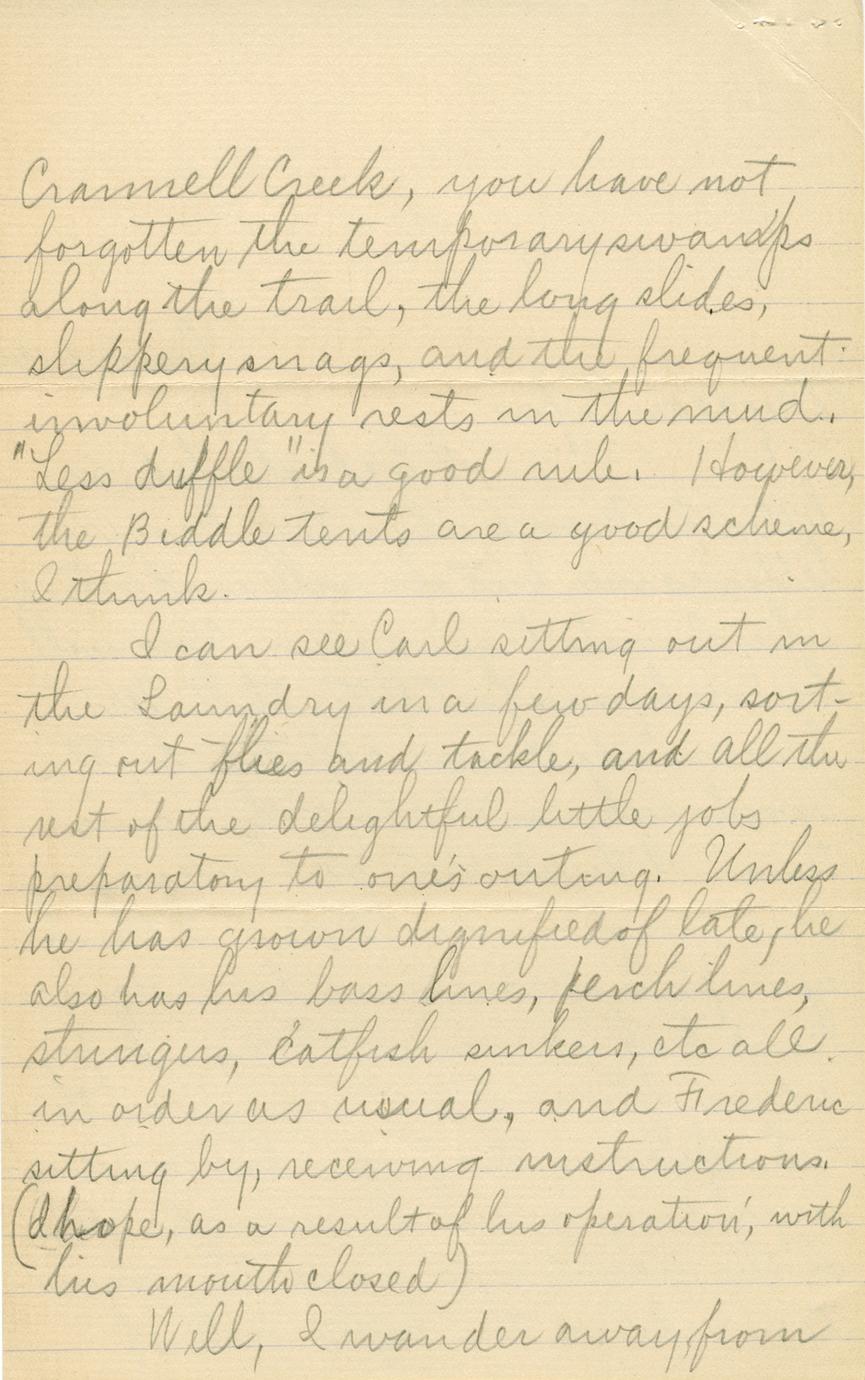 Crannell Creek, you have not
forgotten the temporary swamps
along the trail, the long slides,
slippery snags, and the frequent
involuntary rests in the mud.
"Less duffle" is a good rule. However,
the Biddle tents are a good scheme,
I think.
I can see Carl sitting out in
the Laundry in a few days, sort-
ing out flies and tackle, and all the
rest of the delightful little jobs
preparatory to one's outing. Unless
he has grown dignified of late, he
also has his bass lines, perch lines,
stringers, catfish sinkers, etc all
in order as usual, and Frederic
sitting by, receiving instructions.
(I hope, as a result of his operation, with
his mouth closed)
Well, I wander away from